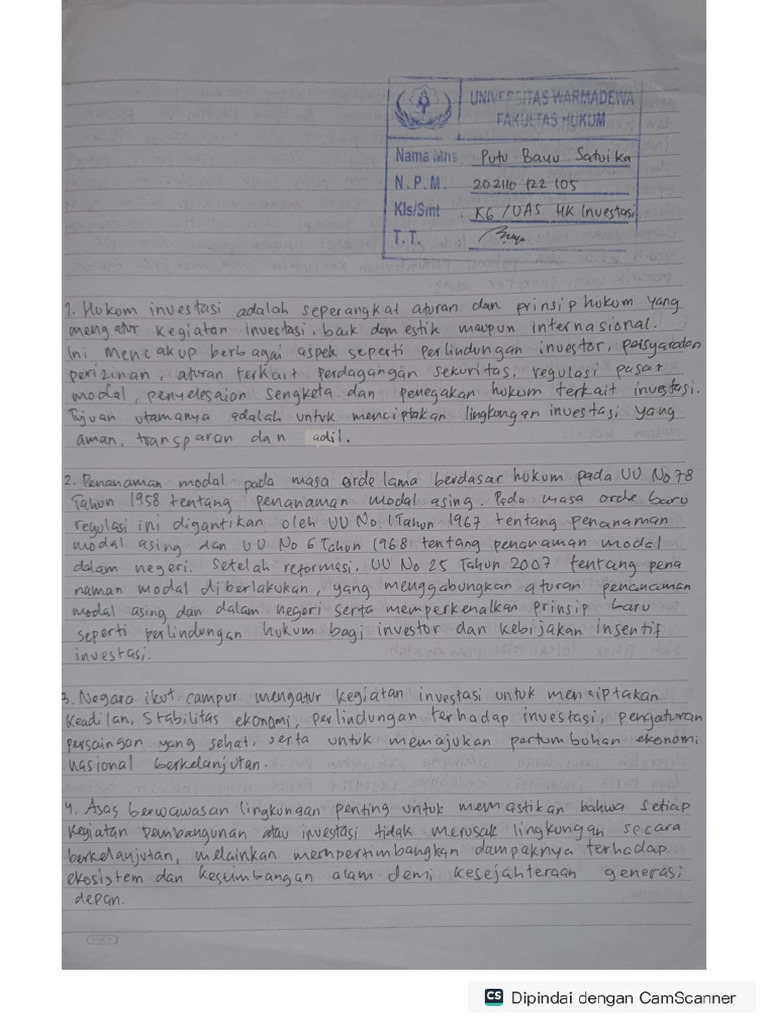 UNIVERSITAS WARMADEWA
FAKULTAS HUKUM
Nama Mhs Putu Bayu Satvika
N.P.M. 202110 122 105
Kls/Smt : K6 / UAS HK Investasi
T.T.
1. Hukom investasi adalah seperangkat aturan dan prinsip hukum yang
mengatur kegiatan investasi, baik domestik maupun internasional.
Ini mencakup berbagai aspek seperti perlindungan investor, persyaratan
perizinan, aturan terkait perdagangan sekuritas, regulasi pasar
modal, penyelesaian sengketa dan penegakan hukom terkait investasi.
Tujuan utamanya adalah untuk menciptakan lingkongan investasi yang
aman, transparan dan adil.
2. Penanaman modal pada masa orde lama berdasar hukum pada UU No 78
Tahun 1958 tentang penanaman modal asing. Pada masa orde baru
regulasi ini digantikan oleh UU No. 1 Tahun 1967 tentang penanaman
modal asing dan UU No 6 Tahun 1968 tentang penanaman modal
dalam negeri. Setelah reformasi. UU No 25 Tahun 2007 tentang pena
naman modal diberlakukan, yang menggabungkan aturan penanaman
modal asing dan dalam negeri serta memperkenalkan prinsip baru
seperti perlindungan hukum bagi investor dan kebijakan insentif
investasi.
3. Negara ikut campur mengatur kegiatan investasi untuk menciptakan
keadilan, stabilitas ekonomi, perlindungan terhadap investasi, pengaturan
persaingan yang sehat, serta untuk memajukan pertumbuhan ekonomi
nasional berkelanjutan.
4. Asas berwawasan lingkungan penting untuk memastikan bahwa setiap
kegiatan pembangunan atau investasi tidak merusak lingkungan secara
berkelanjutan, melainkan mempertimbangkan dampaknya terhadap
ekosistem dan keseimbangan alam demi kesejahteraan generasi
depan.
CS Dipindai dengan CamScanner